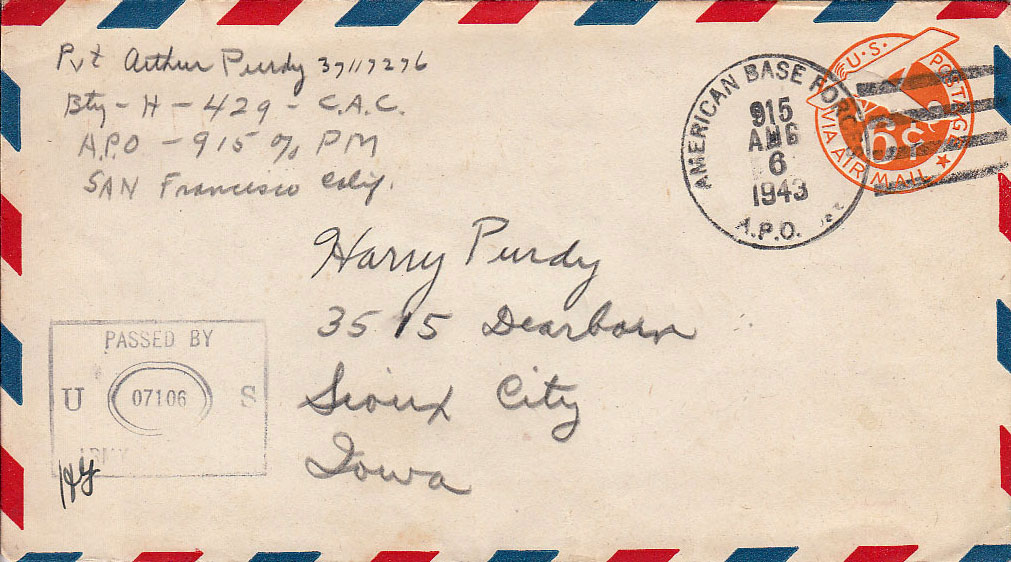 Pvt Arthur Purdy 37117276
Bty - H - 429 - C.A.C.
A.P.O - 915 % PM
SAN Francisco Calif.
AMERICAN BASE FORCES
915
AUG
6
1943
A.P.O.
U.S. POSTAGE
6¢
VIA AIR MAIL
Harry Purdy
3515 Dearborn
Sioux City
Iowa
PASSED BY
U 07106 S
ARMY